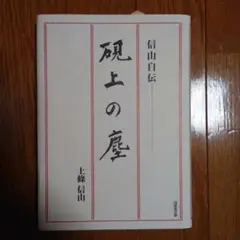 信山自伝
硯上の塵
上條信山